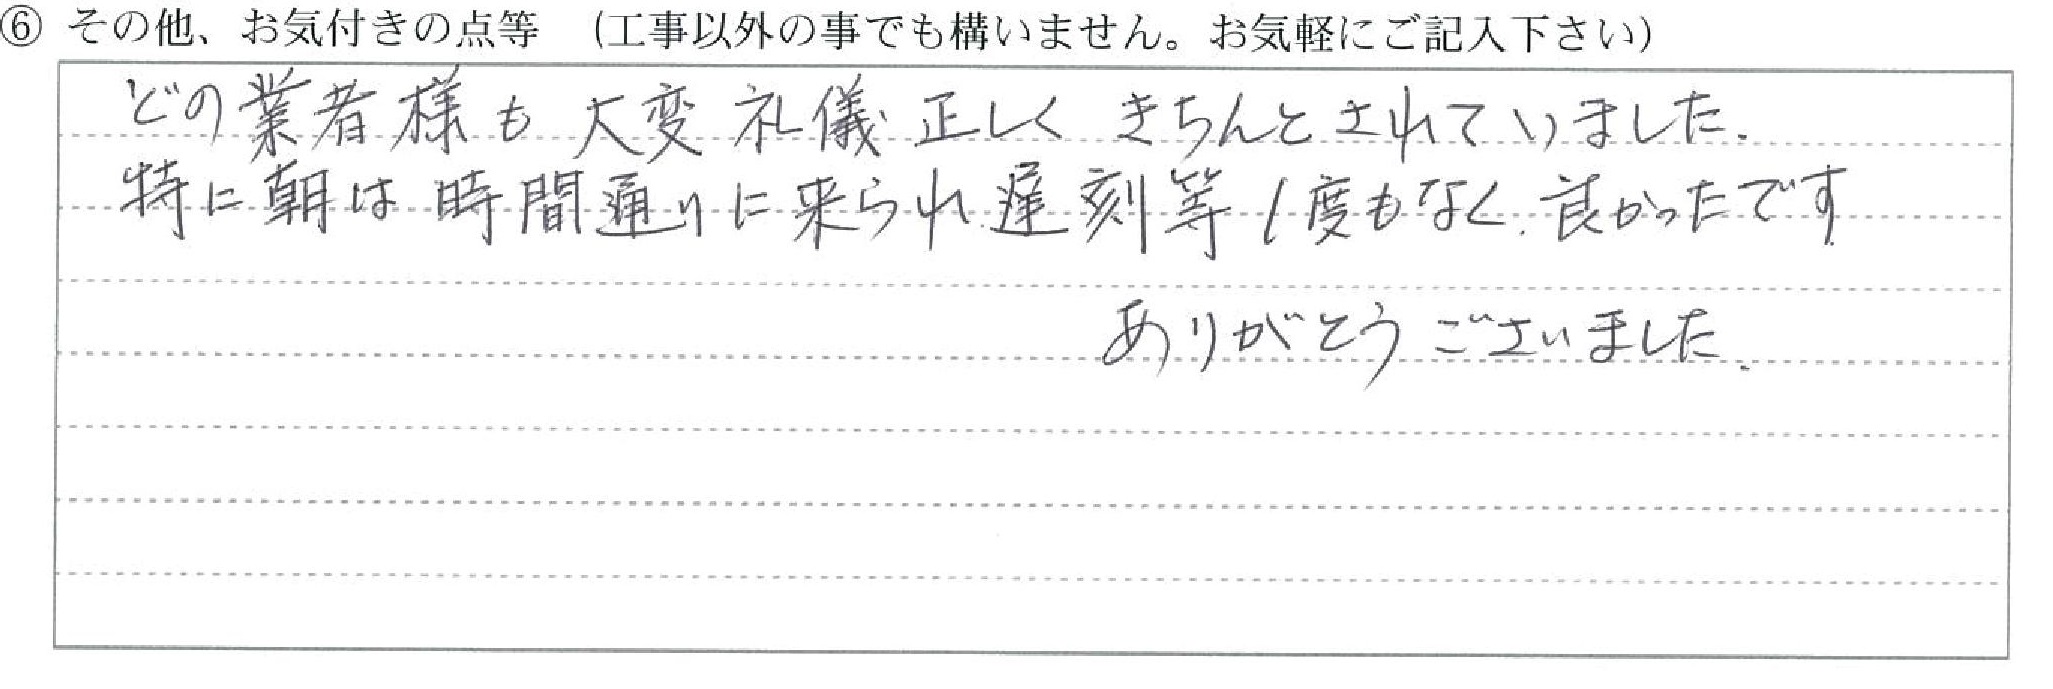 ⑥ その他、お気付きの点等 (工事以外の事でも構いません。お気軽にご記入下さい)
どの業者様も大変礼儀正しくきちんとされていました.
特に朝は時間通りに来られ遅刻等1度もなく.良かったです
ありがとうございました.